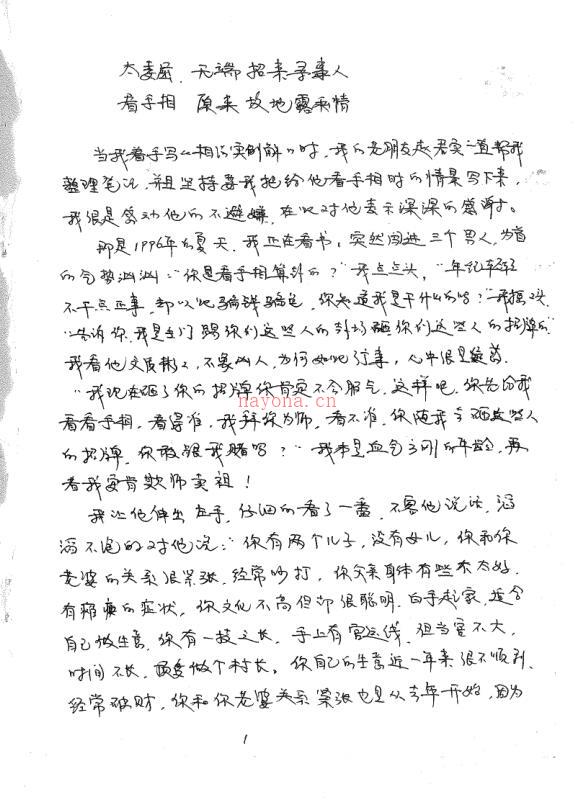 太委屈 无端招来寻事人
看手相 原来故地露实情
当我着手写《相法实例解》时，我的老朋友一直帮我
整理笔记，并且坚持要我把给他看手相时的情景写下来，
我很是感动他的不避嫌，在此对他表示深深的感谢。
那是1996年的夏天，我正在看书，突然闯进三个男人，为首
的气势汹汹：“你是看手相算卦的？”我点点头，“年纪轻轻
不干点正事，却以此骗钱骗色，你知道我是干什么的吗？”我摇头
“告诉你，我是专门踢你们这些人的场砸你们这些人的招牌的”
我看他文质彬彬，不象凶人，为何如此行事，心中很是疑惑。
“我现在砸了你的招牌你肯定不会服气，这样吧，你先给我
看看手相，看得准，我拜你为师，看不准，你随我去砸这些人
的招牌，你敢跟我赌吗？”我本是血气方刚的年龄，再
看我要背欺师卖祖！
我让他伸出左手，仔细的看了一番，不容他说话，滔
滔不绝的对他说：“你有两个儿子，没有女儿，你和你
老婆的关系很紧张，经常吵打，你父亲身体有些不太好，
有的症状，你文化不高但却很聪明，白手起家，适合
自己做生意，你有一技之长，手上有官运线，但当官不大，
时间不长，顶多做个村长。你自己的生意近一年来很不顺利，
经常破财，你和你老婆关系紧张也是从去年开始，因为
1
nayona.cn